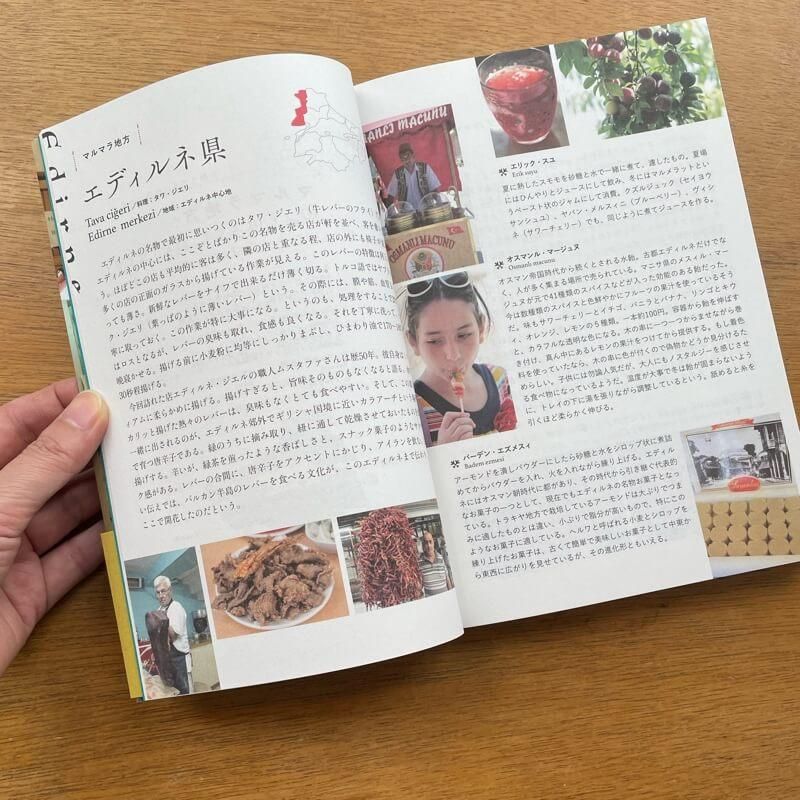 Edirne
マルマラ地方
エディルネ県
Tava ciğeri／料理：タワ・ジエリ
Edirne merkezi／地域：エディルネ中心地
エディルネの名物で最初に思いつくのはタワ・ジエリ（牛レバーのフライ）
エディルネの中心には、ここぞとばかりこの名物を売る店が軒を並べ、客を
う。ほぼどこの店も平均的に客は多く、隣の店と重なる程、店の外にも椅子
多くの店の正面のガラスから揚げている作業が見える。このレバーの特徴は何
っても薄さ。新鮮なレバーをナイフで出来るだけ薄く切る。トルコ語ではヤプ
ク・ジエリ（葉っぱのように薄いレバー）という。その際には、膜や筋、血管
寧に取っておく。この作業が特に大事になる。というのも、処理をすること
はロスとなるが、レバーの臭みも取れ、食感も良くなる。それを丁寧に洗って
晩寝かせる。揚げる前に小麦粉に均等にしっかりまぶし、ひまわり油で170〜
30秒程揚げる。
今回訪れた店エディルネ・ジエルの職人ムスタファさんは歴50年。彼自身は
ィアムに柔らかめに揚げる。揚げすぎると、旨味そのものもなくなると語る。
カリッと揚げた熱々のレバーは、臭みもなくとても食べやすい。そして、こ
一緒に出されるのが、エディルネ郊外でギリシャ国境に近いカラアーチという
で育つ唐辛子である。緑のうちに摘み取り、紐に通して乾燥させておいたもの
揚げする。辛いが、緑茶を煎ったような香ばしさと、スナック菓子のようなサ
ク感がある。レバーの合間に、唐辛子をアクセントにかじり、アイランを飲む
い伝えでは、バルカン半島のレバーを食べる文化が、このエディルネまで伝わ
ここで開花したのだという。
OSMANLI MACUNU
エリック・スユ
Erik suyu
夏に熟したスモモを砂糖と水で一緒に煮て、濾したもの。夏場
にはひんやりとジュースにして飲み、冬にはマルメラットとい
うペースト状のジャムにして消費。クズルジュック（セイヨウ
サンシュユ）、ヤバン・メルスィニ（ブルーベリー）、ヴィシ
ネ（サワーチェリー）でも、同じように煮てジュースを作る。
オスマンル・マージュヌ
Osmanlı macunu
オスマン帝国時代から続くとされる水飴。古都エディルネだけでな
く、人が多く集まる場所で売られている。マニサ県のメスィル・マー
ジュヌが元で41種類のスパイスなどが入った効能のある飴だった。
今は数種類のスパイスと色鮮やかにフルーツの果汁を使っているそう
だ。味もサワーチェリーとイチゴ、バニラとバナナ、リンゴとキウ
イ、オレンジ、レモンの５種類。一本約100円。容器から飴を伸ばす
と、カラフルな透明な色になる。木の串に一つ一つからませながら巻
き付け、真ん中にあるレモンの果汁をつけてから提供する。もし着色
料を使っていたなら、木の串に色が付くので偽物かどうか見分けるた
めらしい。子供には勿論人気だが、大人にもノスタルジーを感じさせ
る食べ物になっているようだ。温度が大事で冬は飴が固まらないよう
に、トレイの下に湯を張りながら調整しているという。舐めると糸を
引くほど柔らかく伸びる。
バーデン・エズメスィ
Badem ezmesi
アーモンドを潰しパウダーにしたら砂糖と水をシロップ状に煮詰
めてからパウダーを入れ、火を入れながら練り上げる。エディル
ネにはオスマン朝時代に都があり、その時代から引き継ぐ代表的
なお菓子の一つとして、現在でもエディルネの名物お菓子となっ
ている。トラキヤ地方で栽培しているアーモンドは大ぶりでつま
みに適したものとは違い、小ぶりで脂分が高いもので、特にこの
ようなお菓子に適している。ヘルワと呼ばれる小麦とシロップを
練り上げたお菓子は、古くて簡単で美味しいお菓子として中東か
ら東西に広がりを見せているが、その進化形ともいえる。